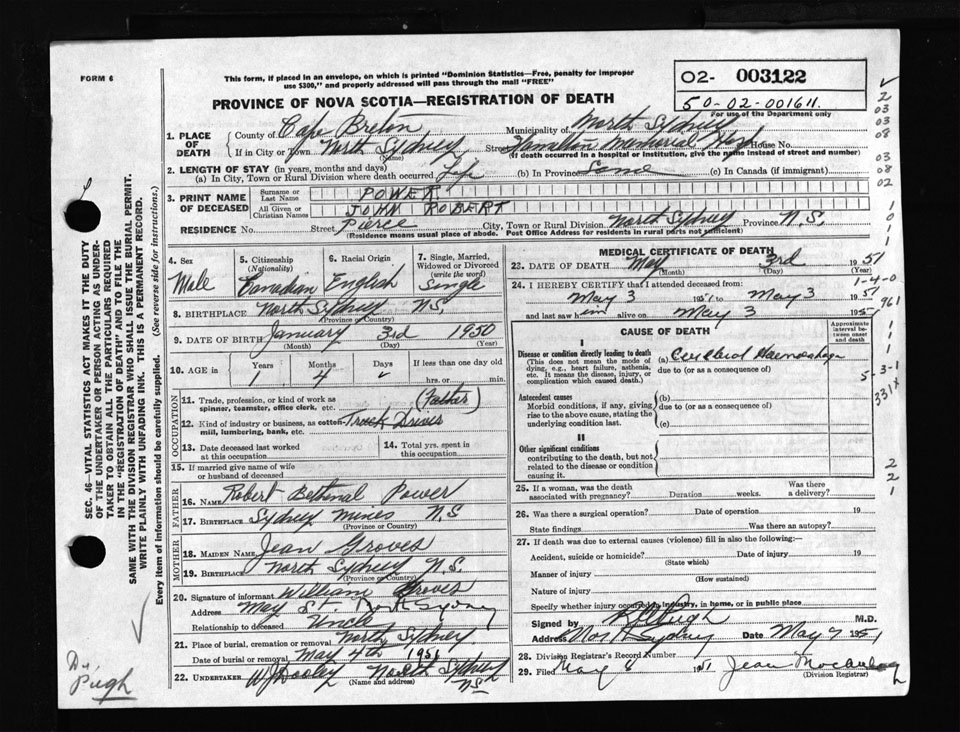 FORM 6
This form, if placed in an envelope, on which is printed "Dominion Statistics—Free, penalty for improper
use $300," and properly addressed will pass through the mail "FREE"
02- 003122
50-02-001611.
For use of the Department only
PROVINCE OF NOVA SCOTIA—REGISTRATION OF DEATH
1. PLACE OF DEATH
County of Cape Breton
Municipality of North Sydney
If in City or Town North Sydney (Name)
Street Hamilton Memorial Hosp House No.
(If death occurred in a hospital or institution, give the name instead of street and number)
2. LENGTH OF STAY (in years, months and days)
(a) In City, Town or Rural Division where death occurred Life (b) In Province Same (c) In Canada (if immigrant)
3. PRINT NAME OF DECEASED
Surname or Last Name POWER
All Given or Christian Names JOHN ROBERT
RESIDENCE No. Street Pierce City, Town or Rural Division North Sydney Province N.S.
(Residence means usual place of abode. Post Office Address for residents in rural parts not sufficient)
4. Sex
Male
5. Citizenship (Nationality)
Canadian
6. Racial Origin
English
7. Single, Married, Widowed or Divorced (write the word)
Single
8. BIRTHPLACE North Sydney N.S.
(Province or Country)
9. DATE OF BIRTH January 3rd 1950
(Month) (Day) (Year)
10. AGE in Years Months Days If less than one day old
1 4 hrs. or min.
OCCUPATION
11. Trade, profession, or kind of work as spinner, teamster, office clerk, etc. (Father)
12. Kind of industry or business, as cotton-mill, lumbering, bank, etc. Truck Driver
13. Date deceased last worked at this occupation
14. Total yrs. spent in this occupation
15. If married give name of wife or husband of deceased
FATHER
16. NAME Robert Power
17. BIRTHPLACE Sydney Mines N.S
(Province or Country)
MOTHER
18. MAIDEN NAME Jean Groves
19. BIRTHPLACE North Sydney N.S.
(Province or Country)
20. Signature of informant William Groves
Address May St. North Sydney
Relationship to deceased Uncle
21. Place of burial, cremation or removal North Sydney
Date of burial or removal May 4th 1951
22. UNDERTAKER W J Dooley North Sydney NS
(Name and address)
MEDICAL CERTIFICATE OF DEATH
23. DATE OF DEATH May 3rd 1951
(Month) (Day) (Year)
24. I HEREBY CERTIFY that I attended deceased from:
May 3 1951 to May 3 1951
and last saw him alive on May 3 1951
CAUSE OF DEATH
Approximate interval between onset and death
I
Disease or condition directly leading to death
(This does not mean the mode of dying, e.g., heart failure, asthenia, etc. It means the disease, injury, or complication which caused death.)
(a) Cerebral Haemorrhage
due to (or as a consequence of)
Antecedent causes
Morbid conditions, if any, giving rise to the above cause, stating the underlying condition last.
(b)
due to (or as a consequence of)
(c)
II
Other significant conditions
contributing to the death, but not related to the disease or condition causing it.
25. If a woman, was the death associated with pregnancy? Duration weeks. Was there a delivery?
26. Was there a surgical operation? Date of operation 19
State findings Was there an autopsy?
27. If death was due to external causes (violence) fill in also the following:—
Accident, suicide or homicide? Date of injury 19
(State which)
Manner of injury
(How sustained)
Nature of injury
Specify whether injury occurred in industry, in home, or in public place
Signed by Pugh M.D.
Address North Sydney Date May 7 1951
28. Division Registrar's Record Number
29. Filed May 1951 Jean
(Division Registrar)
SEC. 46—VITAL STATISTICS ACT MAKES IT THE DUTY
OF THE UNDERTAKER OR PERSON ACTING AS UNDER-
TAKER TO OBTAIN ALL THE PARTICULARS REQUIRED
IN THE "REGISTRATION OF DEATH" AND TO FILE THE
SAME WITH THE DIVISION REGISTRAR WHO SHALL ISSUE THE BURIAL PERMIT.
WRITE PLAINLY WITH UNFADING INK. THIS IS A PERMANENT RECORD.
Every item of information should be carefully supplied. (See reverse side for instructions.)
Dr. Pugh
2
03
03
08
03
08
02
1
0
1
1
1-4-0
961
1
1
1
5-3-1
331X
2
2
1